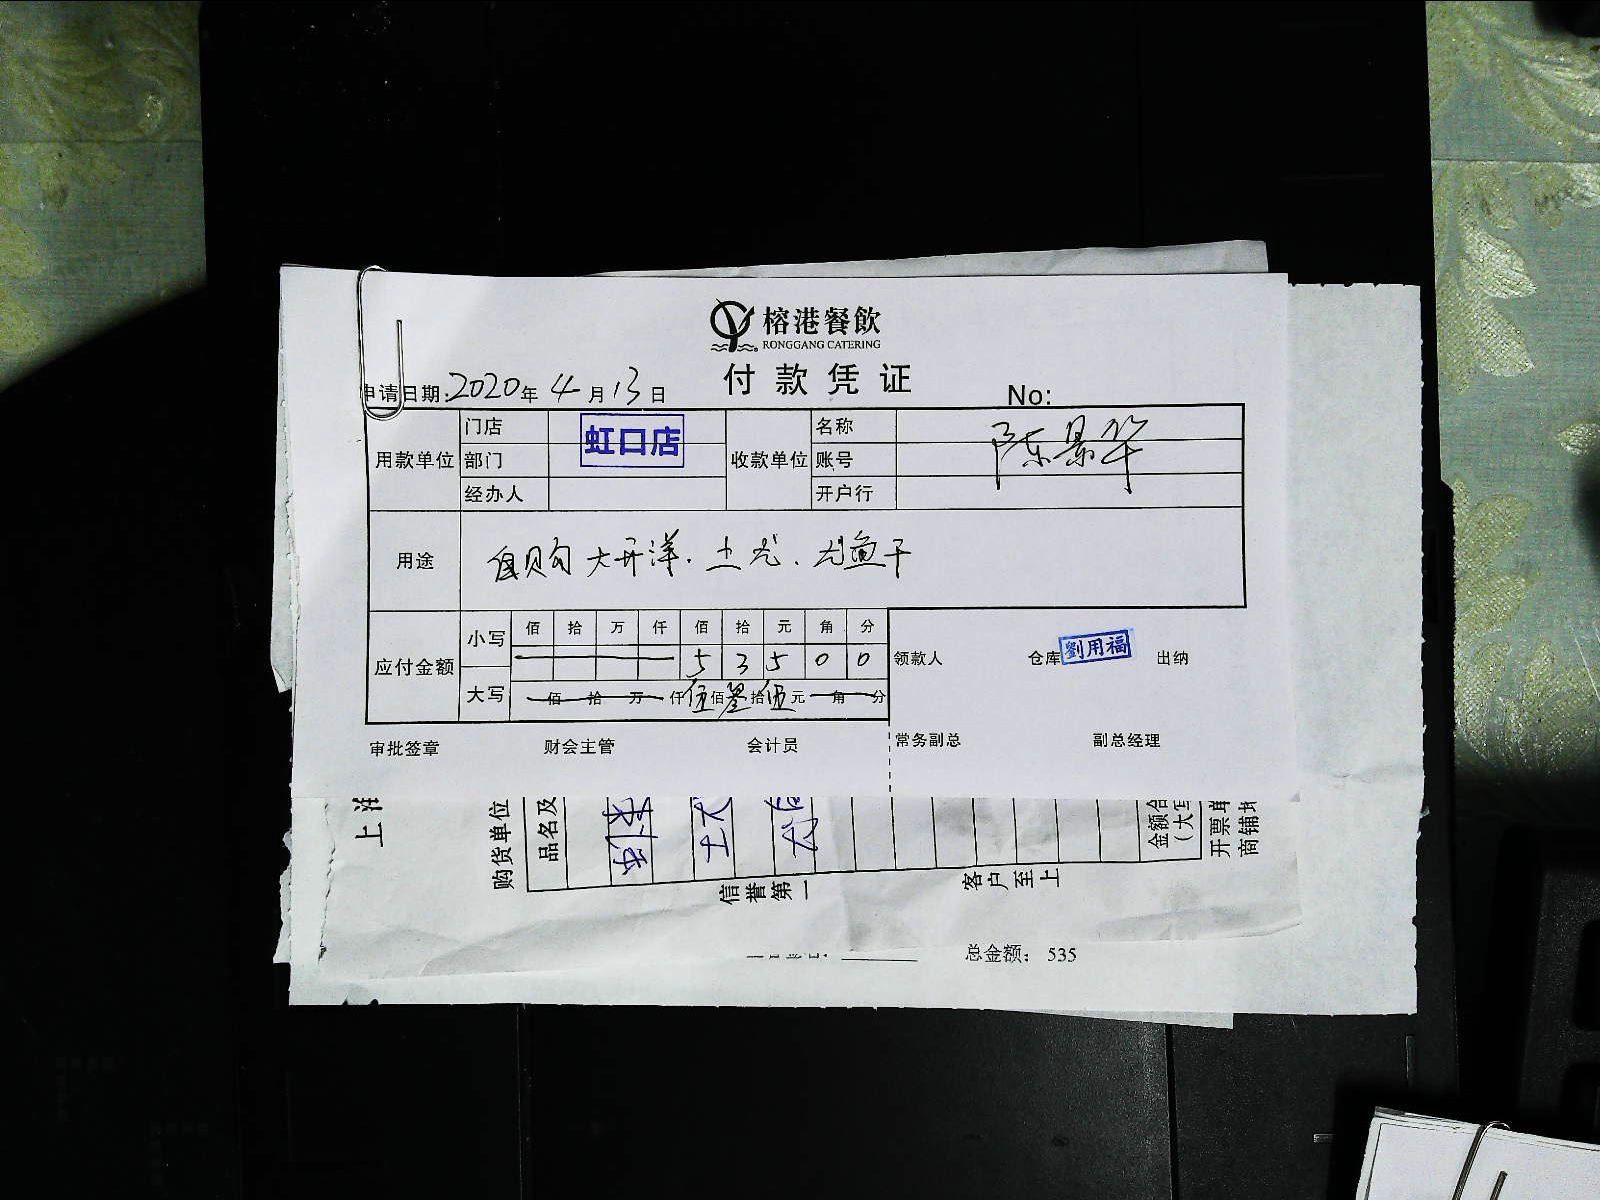 榕港餐飲
RONGGANG CATERING
付款凭证
申请日期:2020年4月13日
No:
用款单位
门店
部门
虹口店
经办人
收款单位
名称
账号
陈景华
开户行
用途
自购大开洋、土龙、尤鱼干
应付金额
小写
佰 拾 万 仟 佰 拾 元 角 分
5 3 5 0 0
大写
佰 拾 万 仟 伍佰 叁拾 伍元 角 分
领款人
仓库
劉用福
出纳
审批签章
财会主管
会计员
常务副总
副总经理
上
购货单位
品名及
信誉第一
客户至上
金额合
(大写
开票单
商铺地
总金额: 535